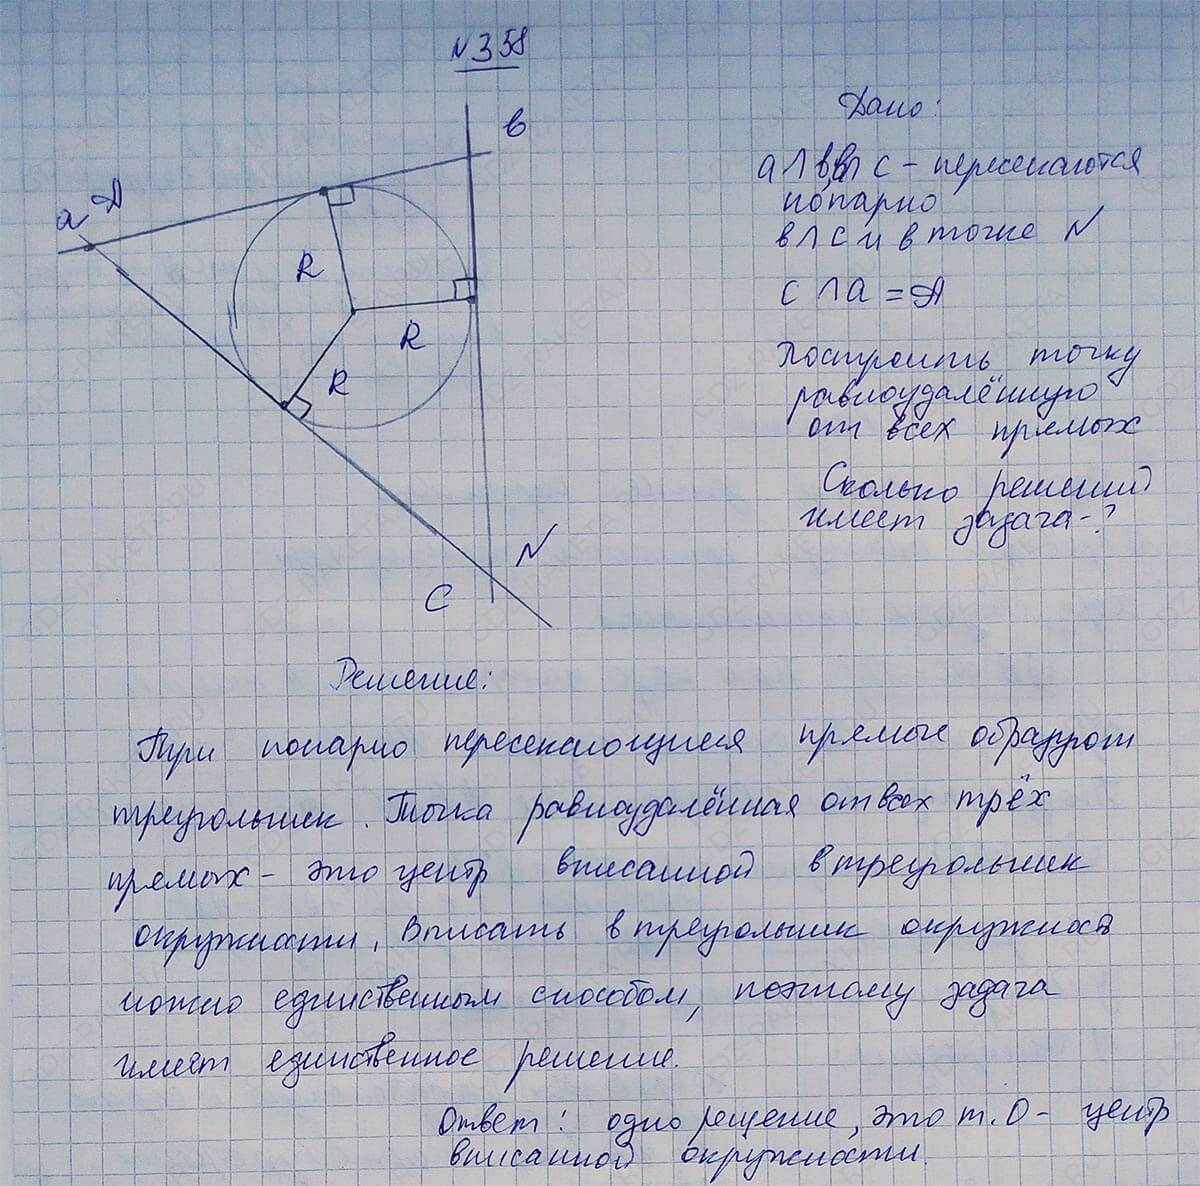 №358
Дано:
a∩b, b∩c - пересекаются
попарно
b∩c и в точке N
c∩a = A
Построить точку
равноудалённую
от всех прямых
Сколько решений
имеет задача-?
a A
b
R
R
R
N
C
Решение:
Три попарно пересекающиеся прямые образуют
треугольник. Точка равноудалённая от всех трёх
прямых - это центр вписанной в треугольник
окружности. Вписать в треугольник окружность
можно единственным способом, поэтому задача
имеет единственное решение.
Ответ: одно решение, это т. О - центр
вписанной окружности.